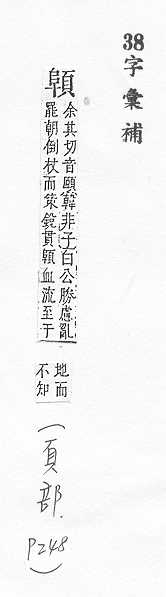 38字彙補
顊
余其切音頤韓非子白公勝慮亂
罷朝倒杖而策銳貫顊血流至于
地而
不知
(頁部.
P248)